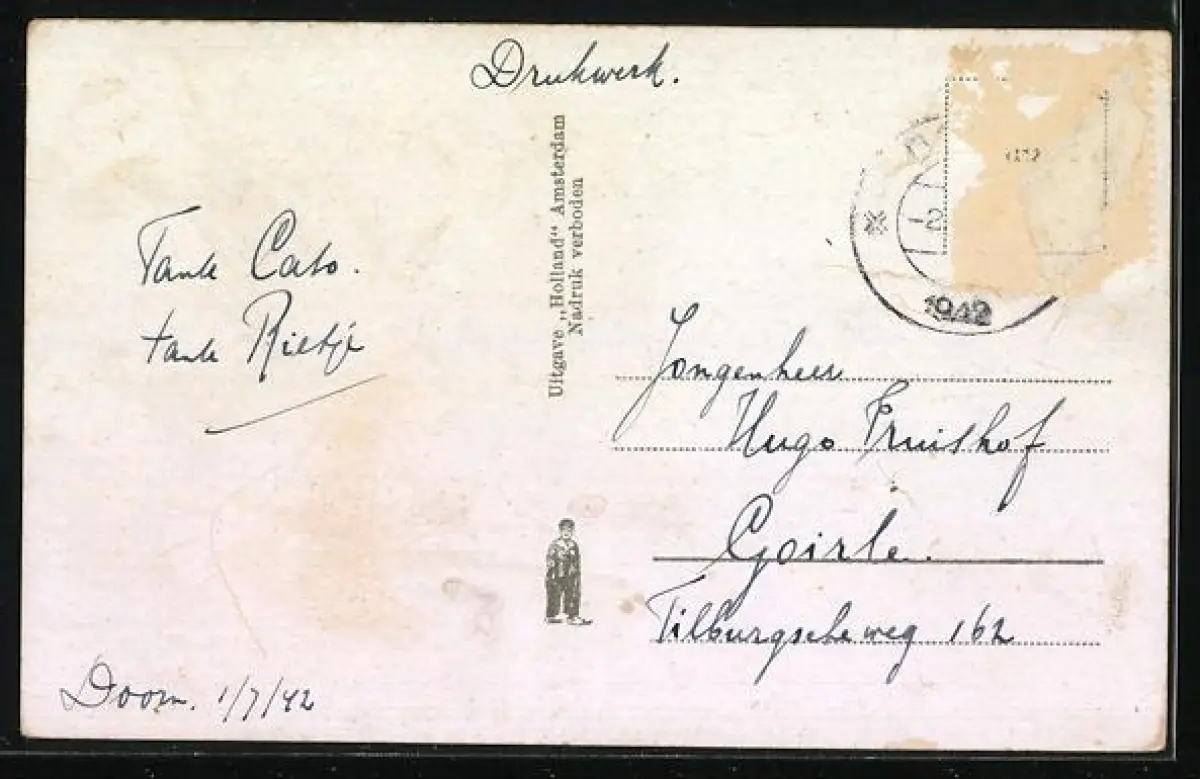 Drukwerk.
Tante Cato.
tante Rietje
Doorn. 1/7/42
Uitgave „Holland" Amsterdam
Nadruk verboden
1942
Jongenheer
Hugo Pruishof
Goirle.
Tilburgsche weg 162